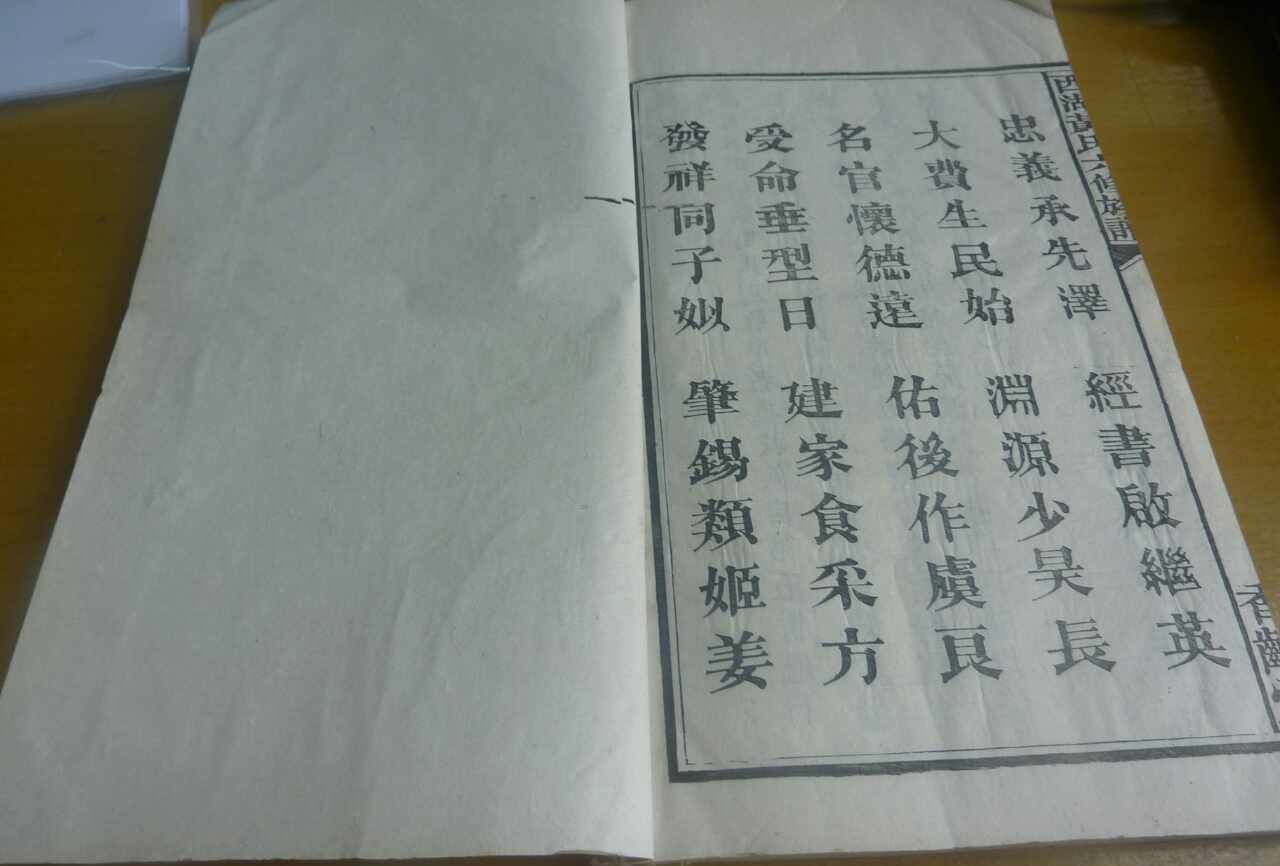 西湖黃氏六修族譜
忠義承先澤 經書啟繼英
大費生民始 淵源少昊長
名官懷德遠 佑後作虞良
受命垂型日 建家食采方
發祥同子姒 肇錫類姬姜